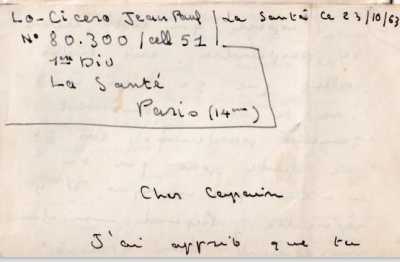 Lo-Cicero Jean Paul / La Santé ce 23/10/63
N° 80.300 / cell 51
1ère Div
La Santé
Paris (14ème)
Cher
J'ai appris que tu